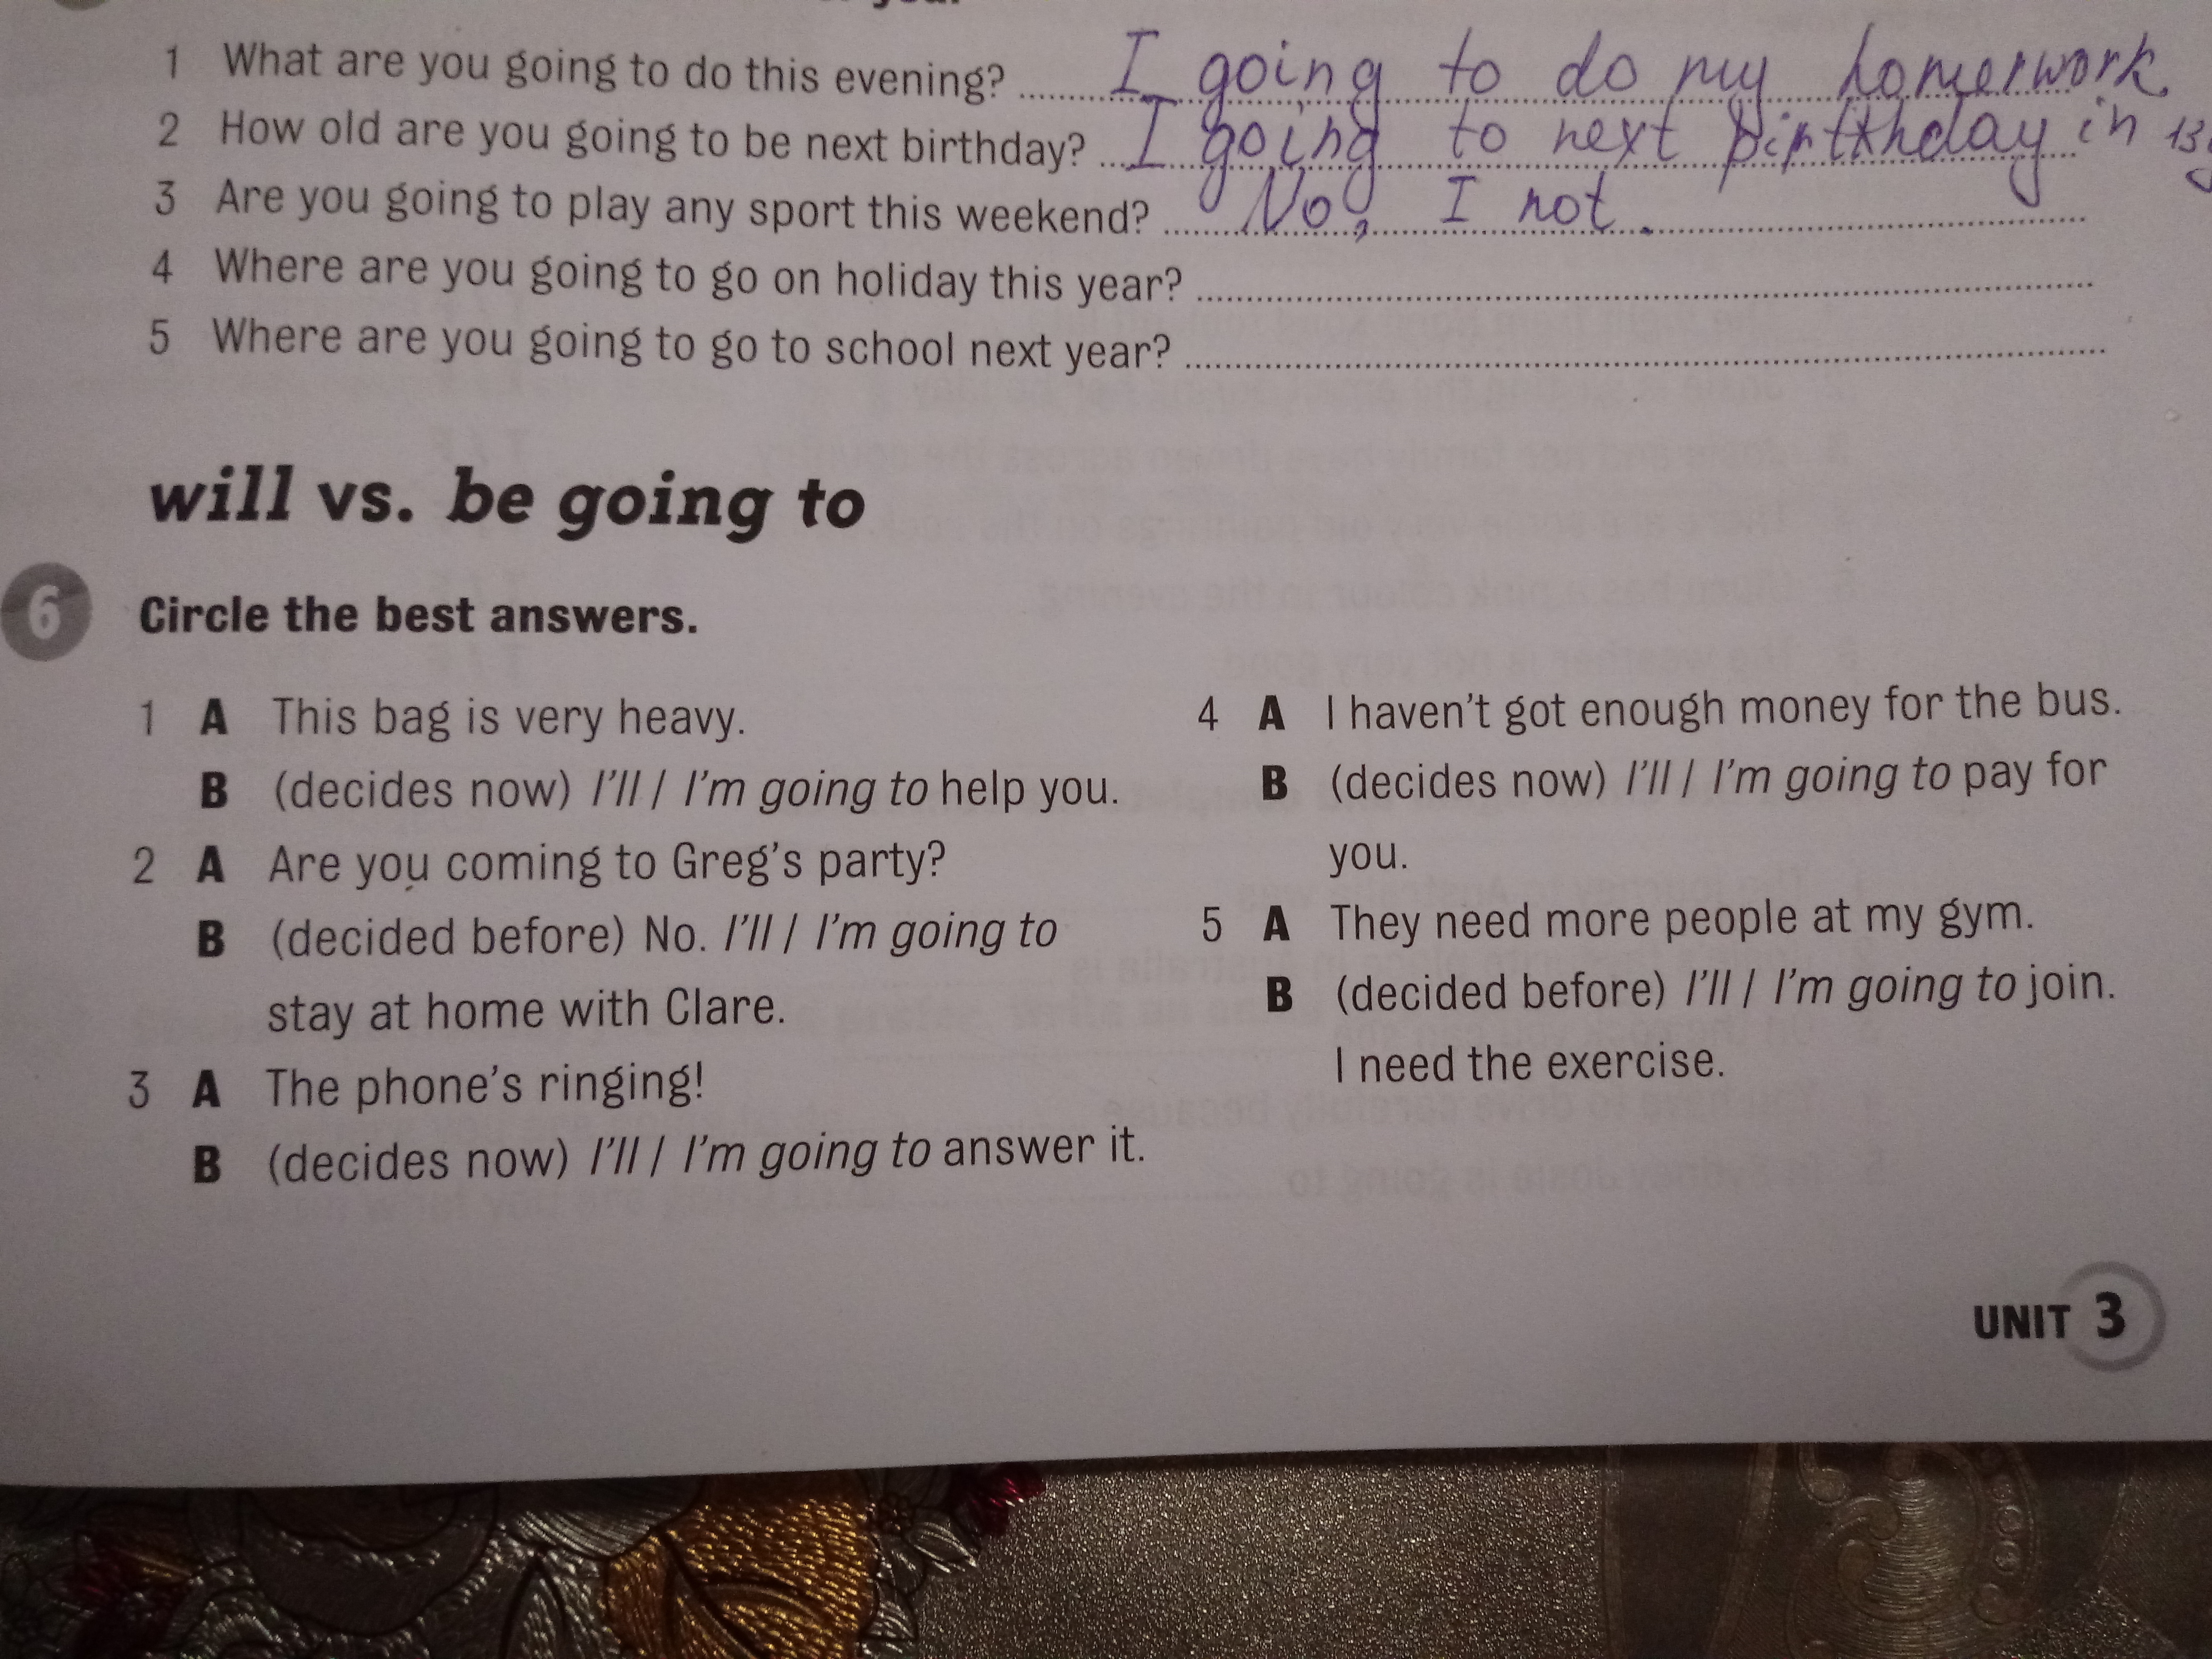 1 What are you going to do this evening? I going to do my homerwork.
2 How old are you going to be next birthday? I going to next birthday in 13
3 Are you going to play any sport this weekend? No, I not.
4 Where are you going to go on holiday this year?
5 Where are you going to go to school next year?
will vs. be going to
6 Circle the best answers.
1 A This bag is very heavy.
B (decides now) I'll / I'm going to help you.
2 A Are you coming to Greg's party?
B (decided before) No. I'll / I'm going to
stay at home with Clare.
3 A The phone's ringing!
B (decides now) I'll / I'm going to answer it.
4 A I haven't got enough money for the bus.
B (decides now) I'll / I'm going to pay for
you.
5 A They need more people at my gym.
B (decided before) I'll / I'm going to join.
I need the exercise.
UNIT 3